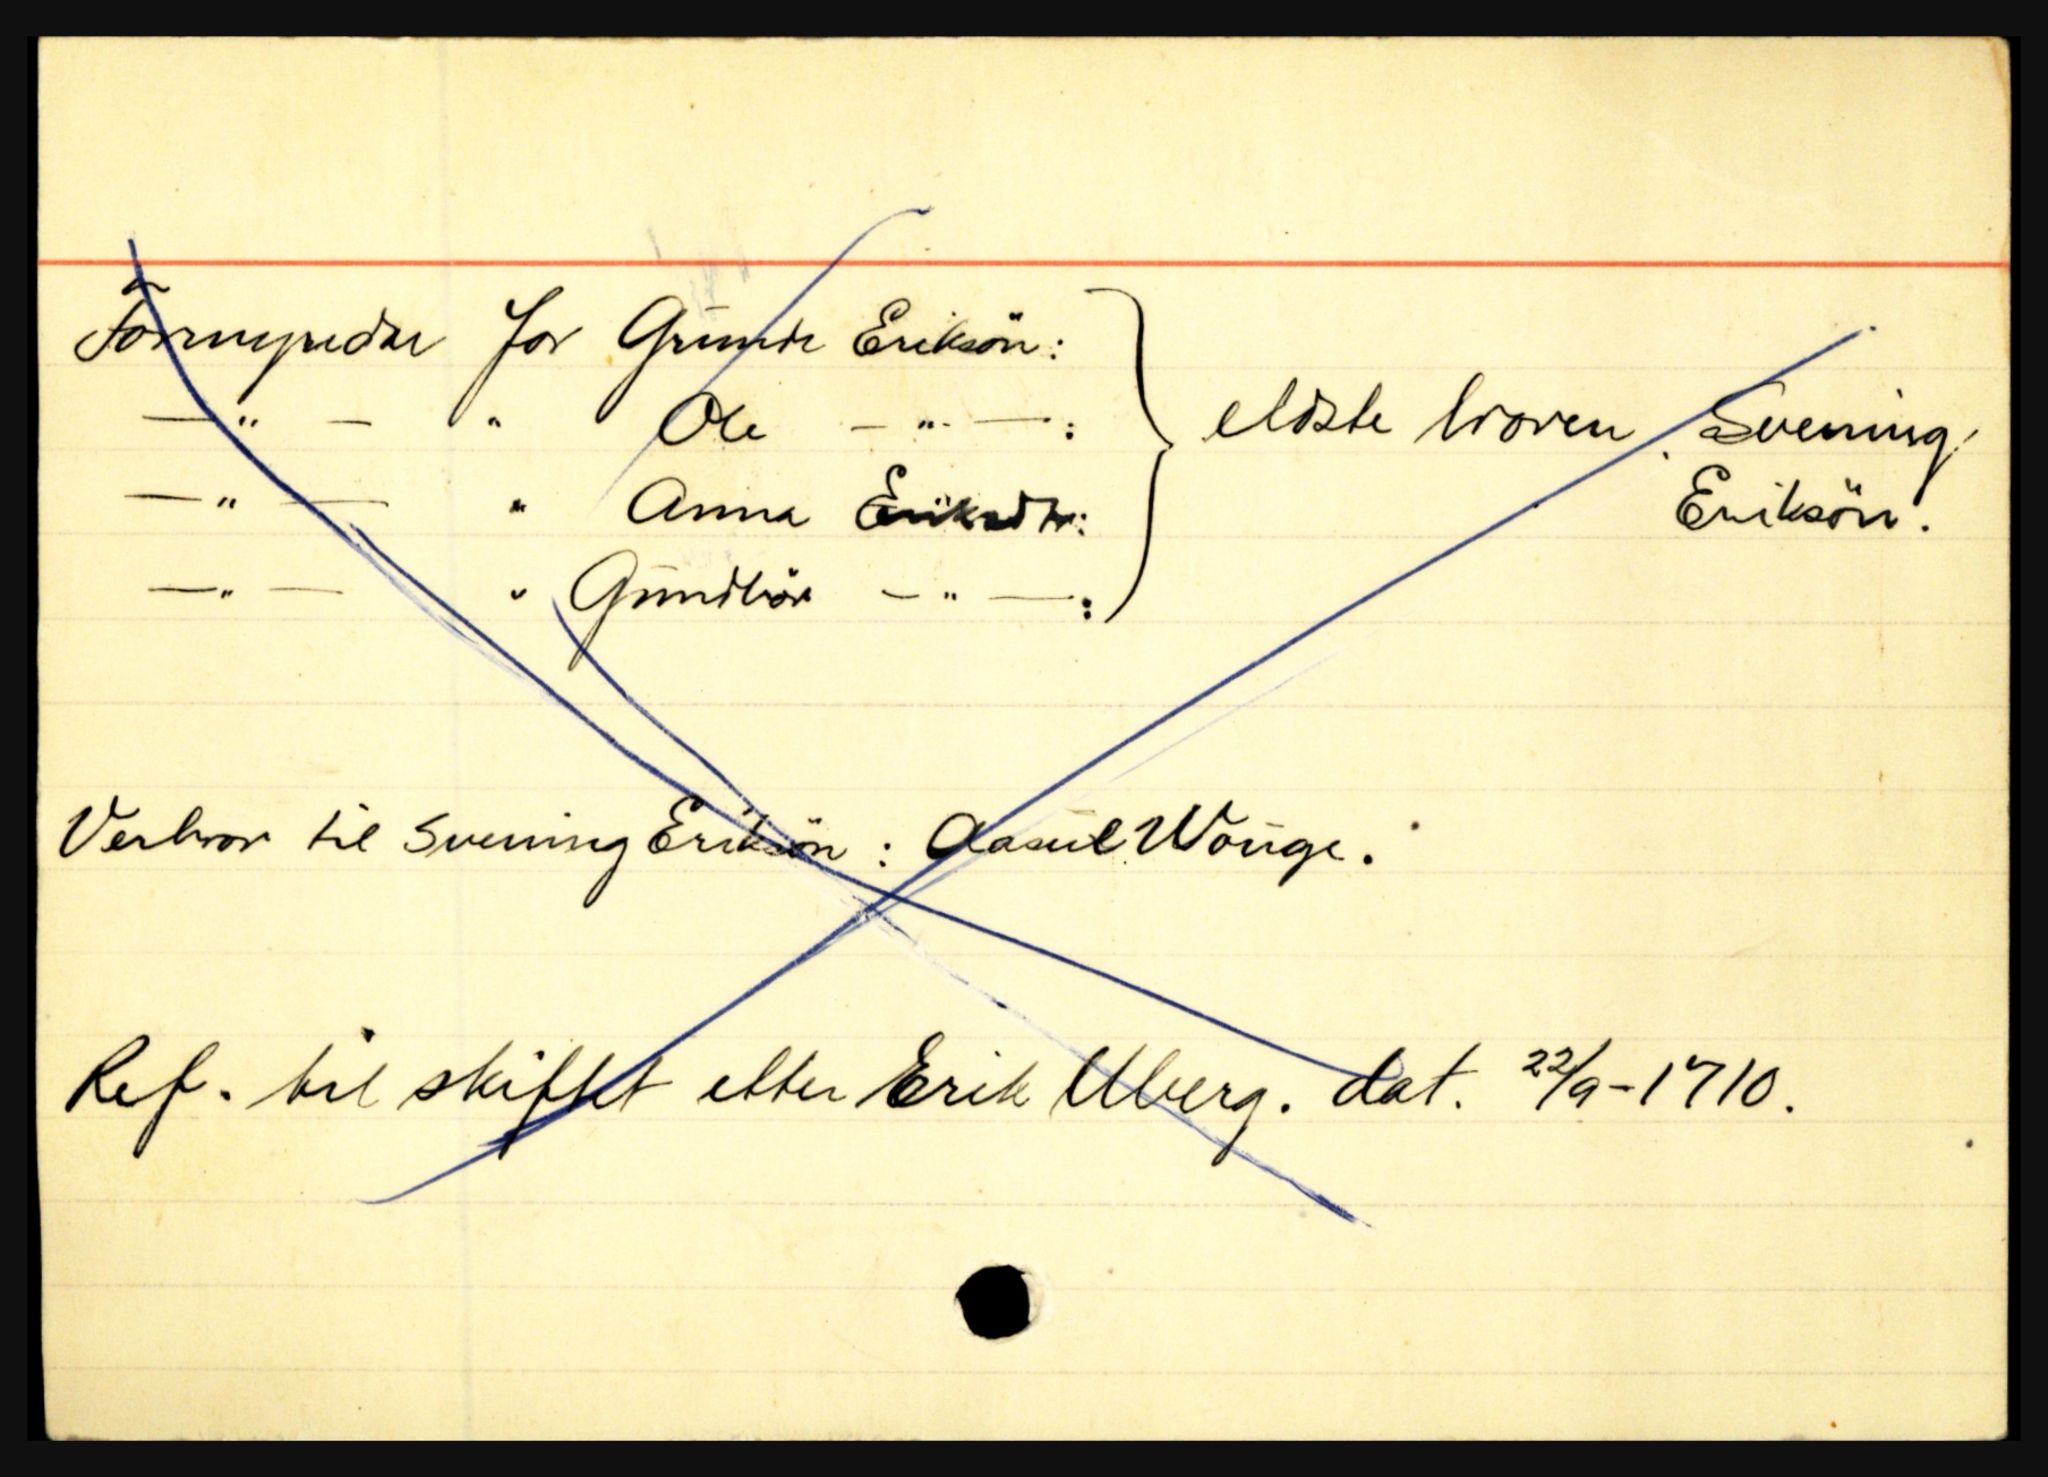 Formynder for Grunde Eriksön:
—"— " Ole —"—:
—"— " Anna Eriksdtr:
—"— " Gundbör —"—:
} eldste broren Svening Eriksön.
Verbror til Svening Eriksön: Aasul Wouge.
Ref. til skiftet etter Erik Uberg. dat. 22/9-1710.